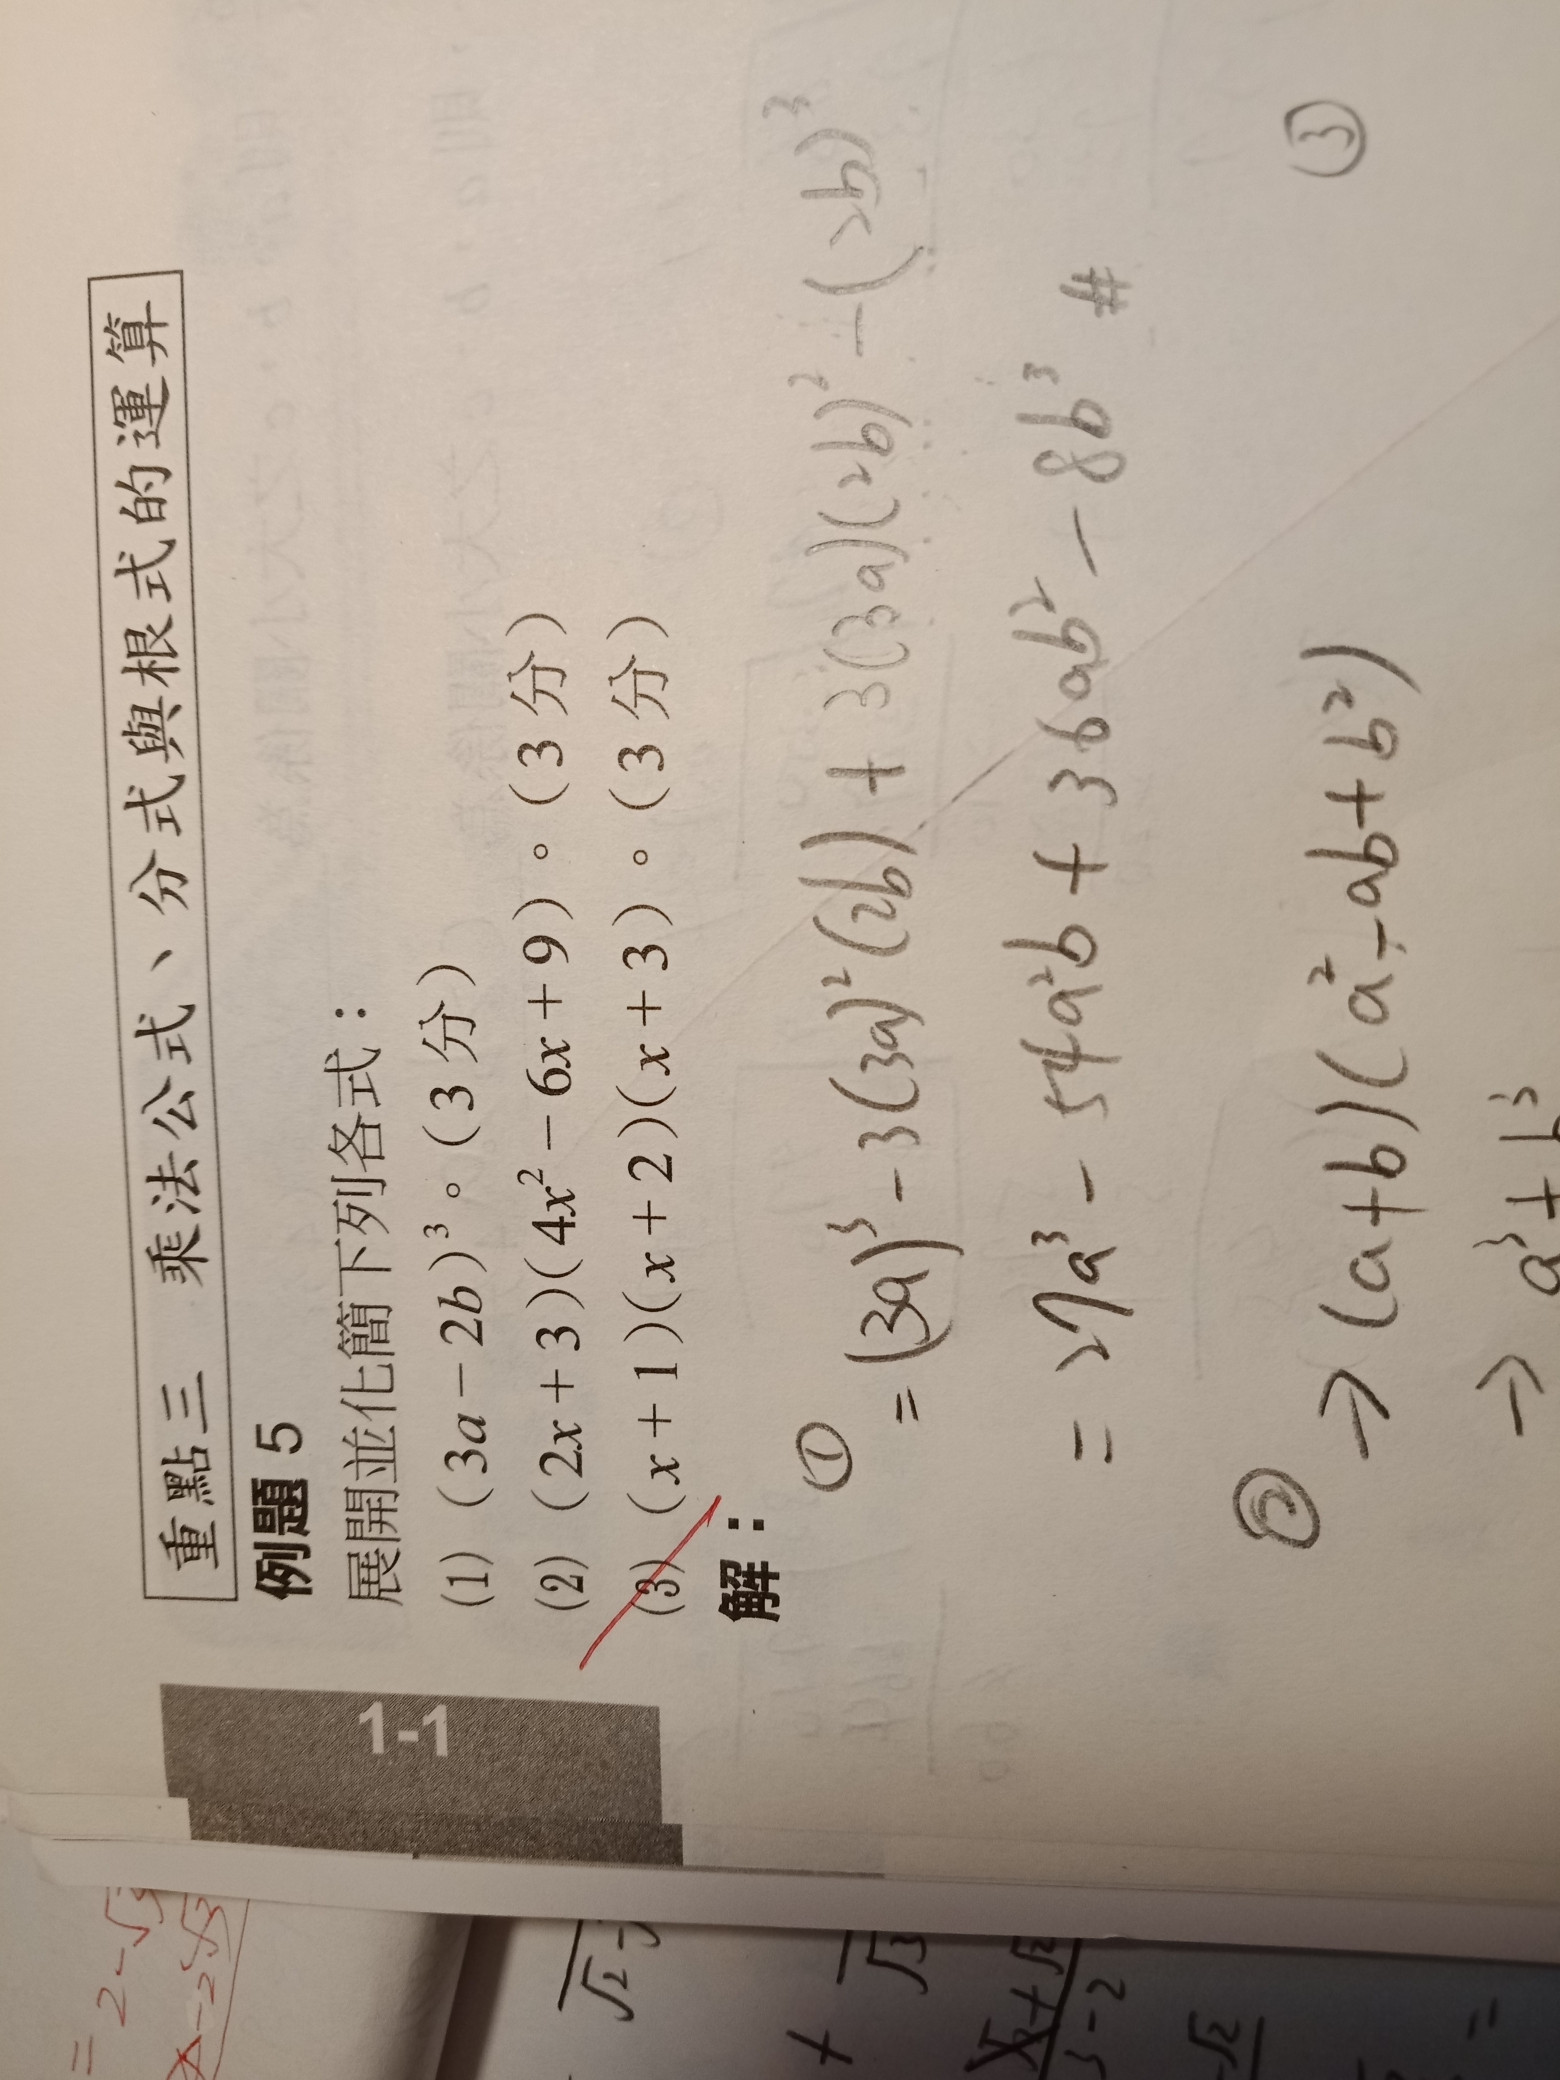 重點三 乘法公式、分式與根式的運算
例題 5
展開並化簡下列各式：
(1) (3a－2b)³。(3 分)
(2) (2x＋3)(4x²－6x＋9)。(3 分)
(3) (x＋1)(x＋2)(x＋3)。(3 分)
解：
1-1
①
= (3a)³ - 3(3a)²(2b) + 3(3a)(2b)² - (2b)³
= 27a³ - 54a²b + 36ab² - 8b³ #
②
→ (a+b)(a²-ab+b²)
→ a³+b³
③
= 2-√3